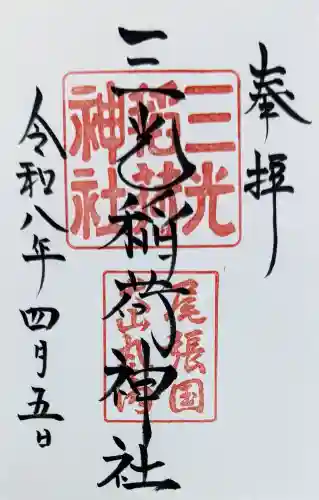 奉拝
三光稲荷神社
令和八年四月五日
三光
稲荷
神社
尾張国
犬山